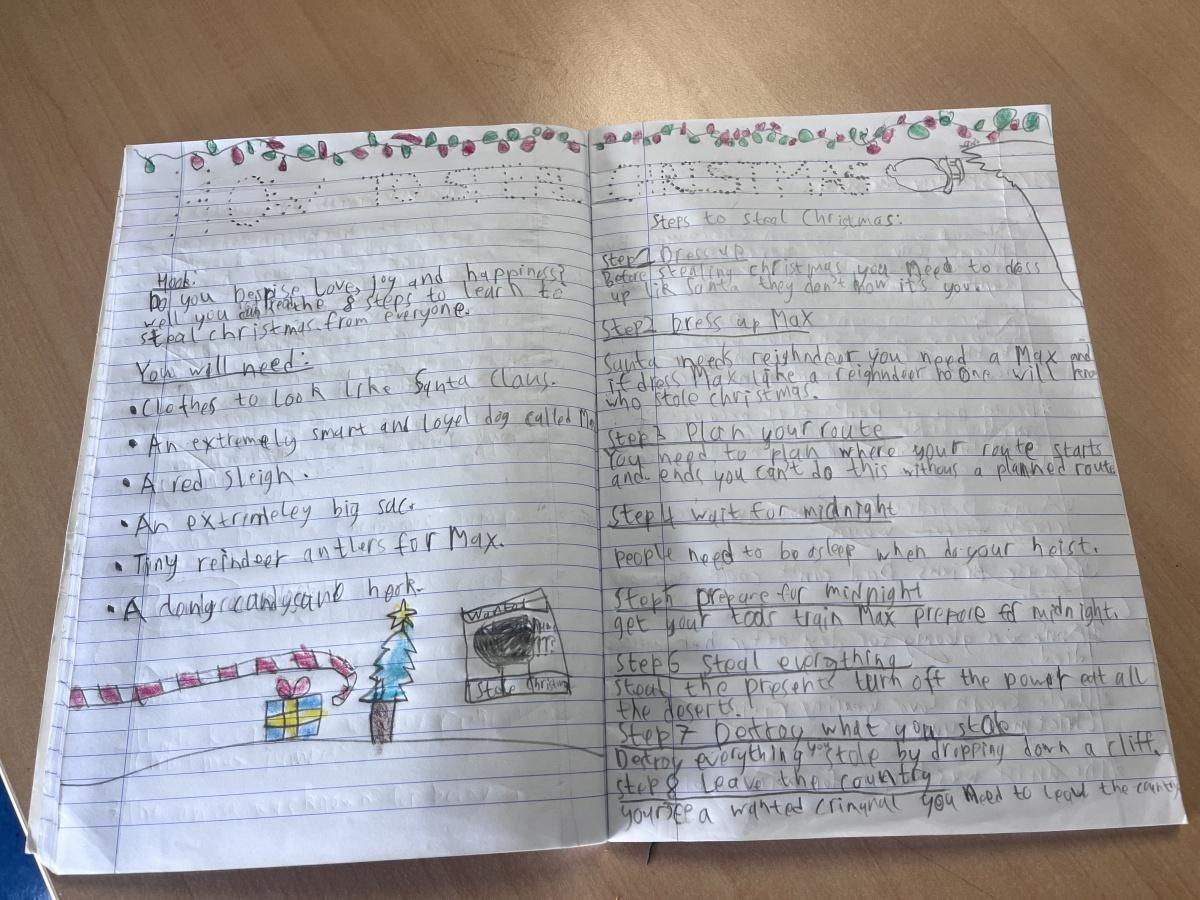 HOW TO STEAL CHRISTMAS
Hook:
Do you Despise Love, joy and happiness?
well you can the 8 steps to learn to
steal christmas from everyone.
You will need:
• Clothes to look like Santa Claus.
• An extremely smart and loyel dog called
• A red sleigh.
• An extrimeley big sac.
• Tiny reindeer antlers for Max.
• A hook.
Wanted
Stole Christmas
Steps to steal Christmas:
Step1 Dress up
Before stealing christmas you need to dress
up lik Santa they don't now it's you.
Step2 Dress up Max
Santa needs reighndeer you need a Max and
if dress Max like a reighndeer no one will
who stole christmas.
Step3 Plan your route
You need to plan where your route starts
and ends you can't do this without a planned route
Step4 wait for midnight
people need to be asleep when do your heist.
Step5 prepare for midnight
get your tools train Max prepare for midnight.
Step6 Steal everything
steal the presents turn off the power eat all
the deserts.
Step7 Destroy what you stole
Detroy everything you stole by dropping down a cliff.
step8 Leave the country
a wanted you Need to leave the country